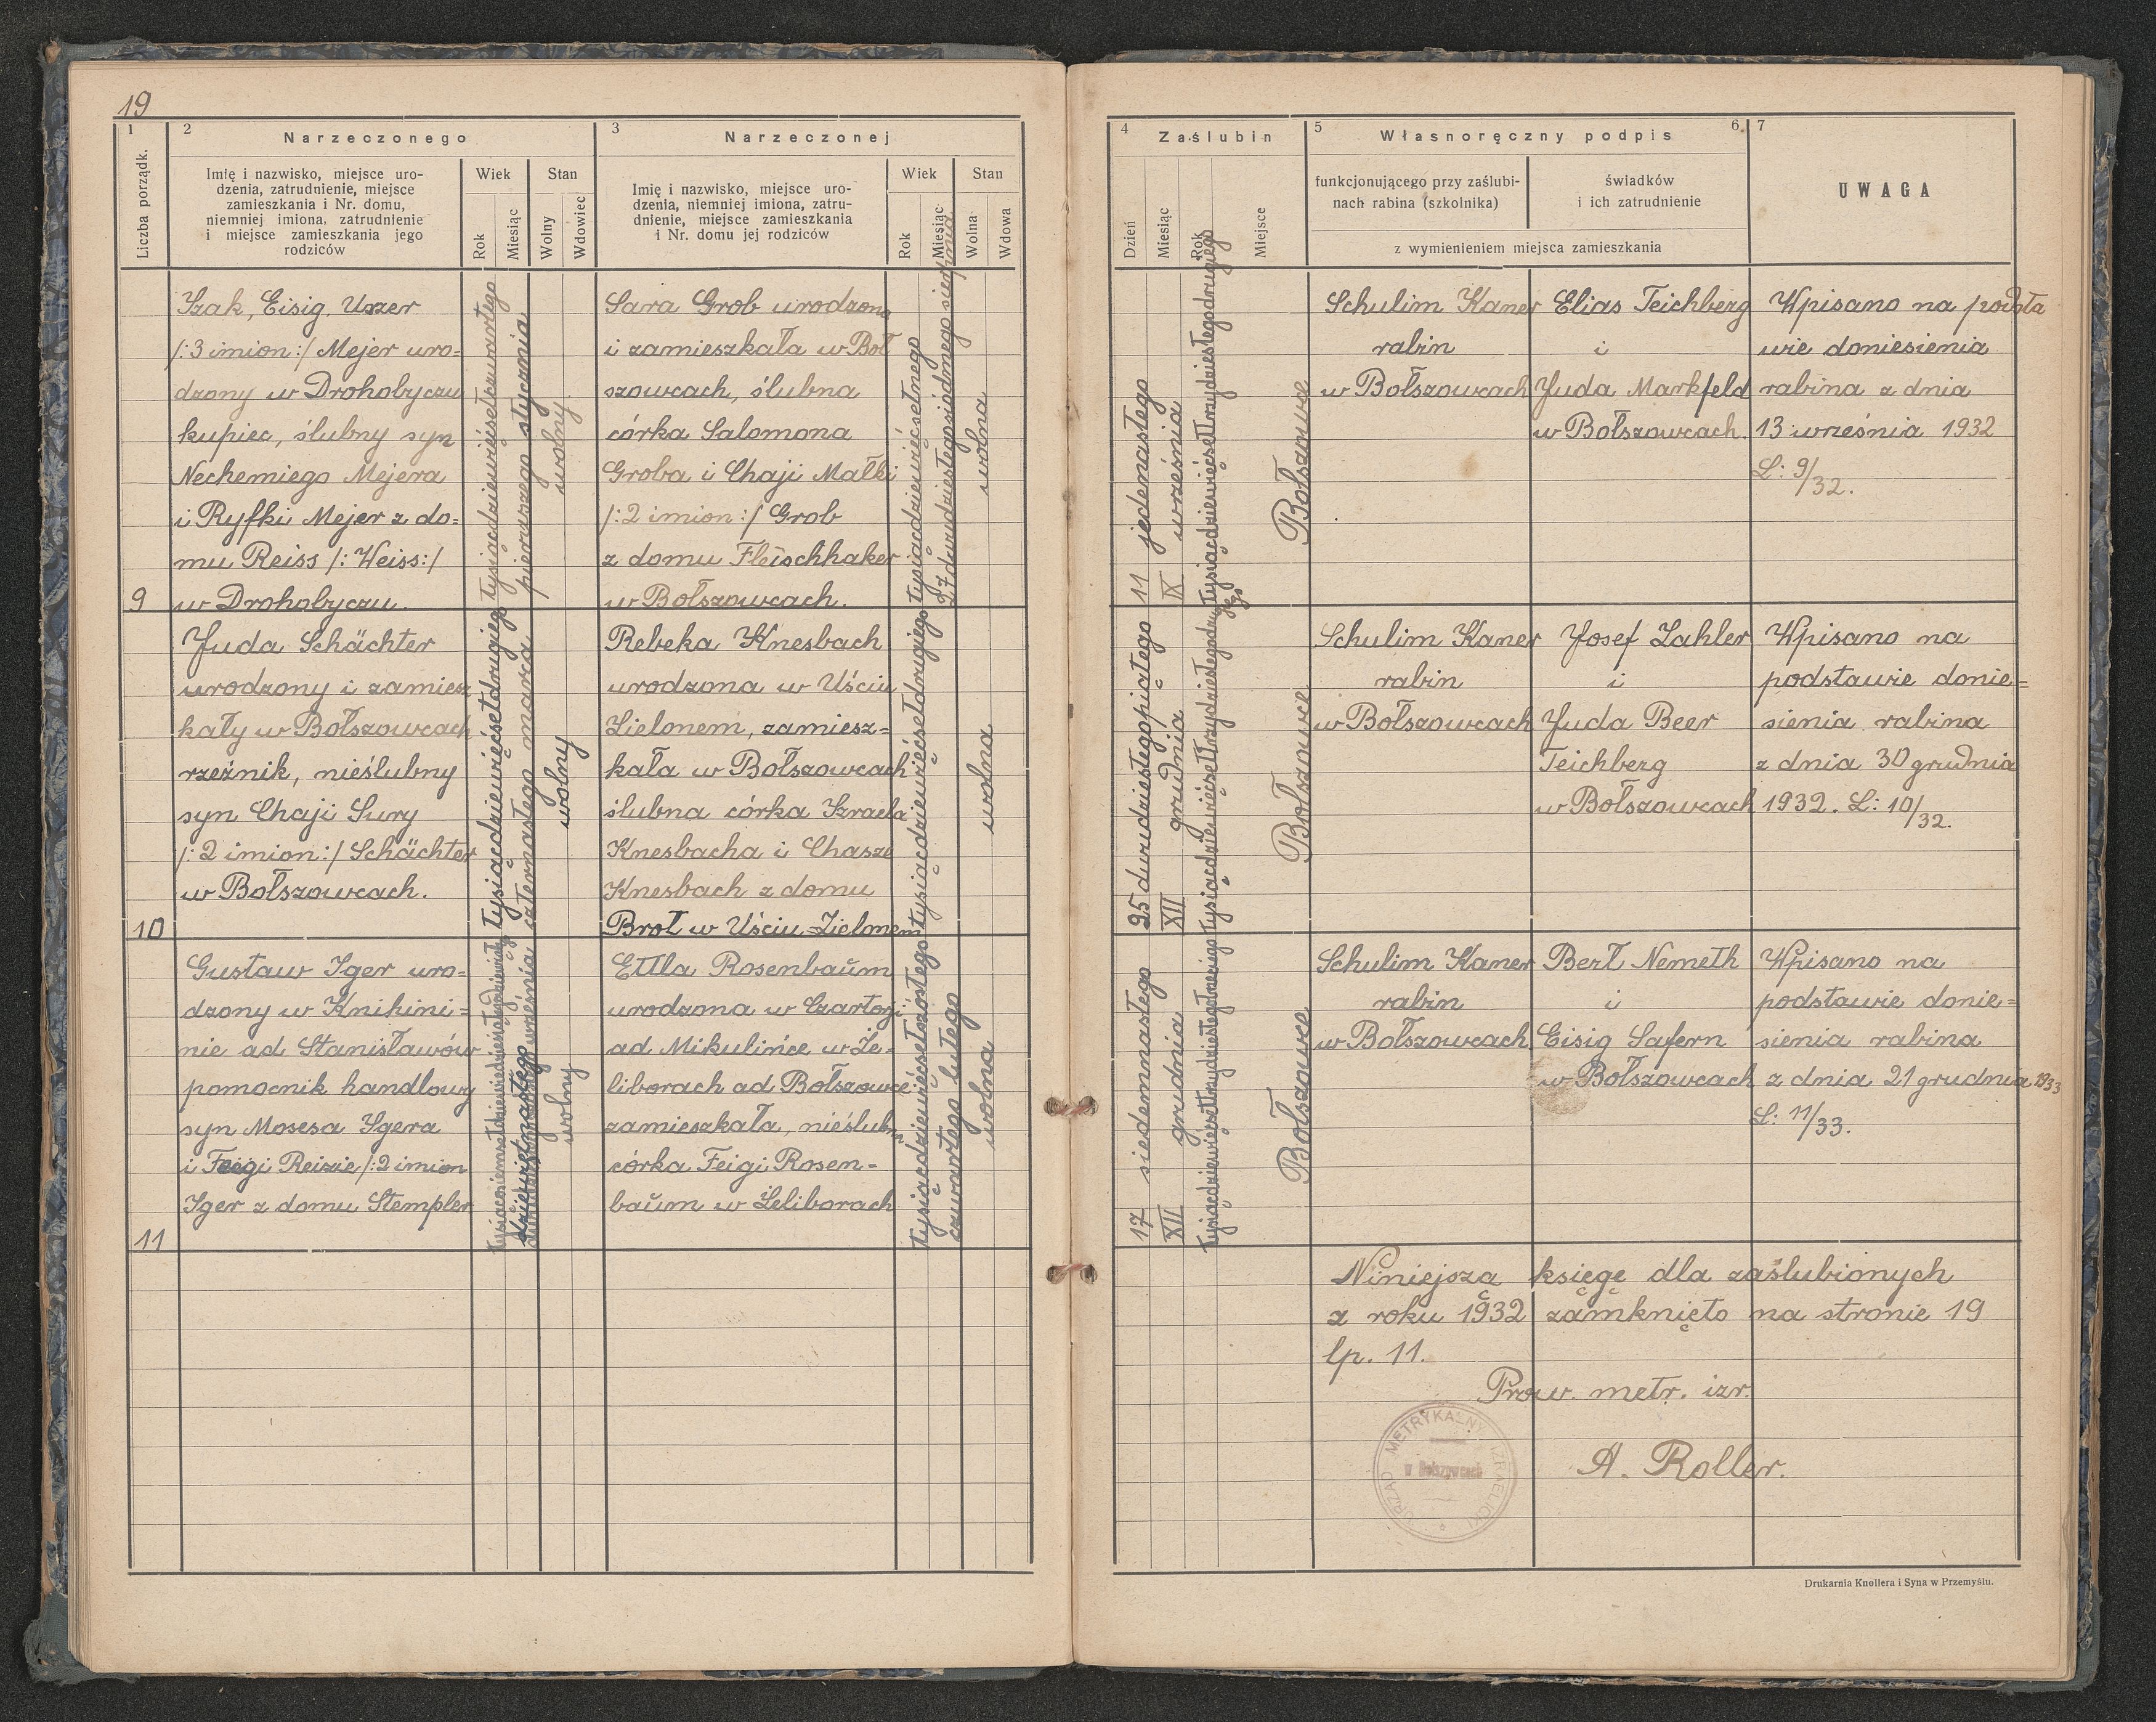 19
1
Liczba porządk.
2
Narzeczonego
Imię i nazwisko, miejsce uro-
dzenia, zatrudnienie, miejsce
zamieszkania i Nr. domu,
niemniej imiona, zatrudnienie
i miejsce zamieszkania jego
rodziców
Wiek
Rok
Miesiąc
Stan
Wolny
Wdowiec
3
Narzeczonej
Imię i nazwisko, miejsce uro-
dzenia, niemniej imiona, zatru-
dnienie, miejsce zamieszkania
i Nr. domu jej rodziców
Wiek
Rok
Miesiąc
Stan
Wolna
Wdowa
4
Zaślubin
Dzień
Miesiąc
Rok
Miejsce
5
Własnoręczny podpis
6
funkcjonującego przy zaślubi-
nach rabina (szkolnika)
świadków
i ich zatrudnienie
z wymienieniem miejsca zamieszkania
7
UWAGA
9
Izak, Eisig, Uszer
/:3 imion:/ Mejer uro=
dzony w Drohobyczu
kupiec, ślubny syn
Nechemiego Mejera
i Ryfki Mejer z do=
mu Reiss /: Weiss:/
w Drohobyczu.
tysiącdziewięćsetczwartego
pierwszego stycznia
wolny
Sara Grob urodzona
i zamieszkała w Boł
szowcach, ślubna
córka Salomona
Groba i Chaji Małki
/:2 imion:/ Grob
z domu Fleischhaker
w Bołszowcach.
tysiącdziewięćsetnego
27 dwudziestegosiódmego sierpnia
wolna
11 jedenastego
IX września
tysiącdziewięćsettrzydziestegodrugiego
Bołszowce
Schulim Kaner
rabin
w Bołszowcach
Elias Teichberg
i
Juda Markfeld
w Bołszowcach.
Wpisano na podsta
wie doniesienia
rabina z dnia
13 września 1932
L: 9/32.
10
Juda Schächter
urodzony i zamiesz
kały w Bołszowcach
rzeźnik, nieślubny
syn Chaji Sury
/:2 imion:/ Schächter
w Bołszowcach.
tysiącdziewięćsetdrugiego
czternastego marca
wolny
Rebeka Knesbach
urodzona w Uściu
Zielonem, zamiesz=
kała w Bołszowcach
ślubna córka Izraela
Knesbacha i Chasze
Knesbach z domu
Brot w Uściu-Zielonem
tysiącdziewięćsetdrugiego
wolna
25 dwudziestegopiątego
XII grudnia
Bołszowce
Schulim Kaner
rabin
w Bołszowcach
Josef Zahler
i
Juda Beer
Teichberg
w Bołszowcach
Wpisano na
podstawie donie=
sienia rabina
z dnia 30 grudnia
1932. L: 10/32.
11
Gustaw Iger uro=
dzony w Knihini=
nie ad Stanisławów
pomocnik handlowy
syn Mosesa Igera
i Feigi Reizie /:2 imion
Iger z domu Stempler
września
wolny
Ettla Rosenbaŭm
urodzona w Czartorji
ad Mikulińce w Że=
liborach ad Bołszowce
zamieszkała, nieślubna
córka Feigi Rosen-
baŭm w Żeliborach
tysiącdziewięćsetszóstego
czwartego lutego
wolna
17 siedemnastego
XII grudnia
tysiącdziewięćsettrzydziestegotrzeciego
Bołszowce
Schulim Kaner
rabin
w Bołszowcach
Bert Nemeth
i
Eisig Safern
w Bołszowcach
Wpisano na
podstawie donie=
sienia rabina
z dnia 21 grudnia 1933
L: 11/33.
Niniejszą księgę dla zaślubionych
z roku 1932 zamknięto na stronie 19
lp. 11.
Prow. metr. izr.
A. Roller.
URZĄD METRYKALNY IZRAELICKI
w Bołszowcach
Drukarnia Knollera i Syna w Przemyślu.